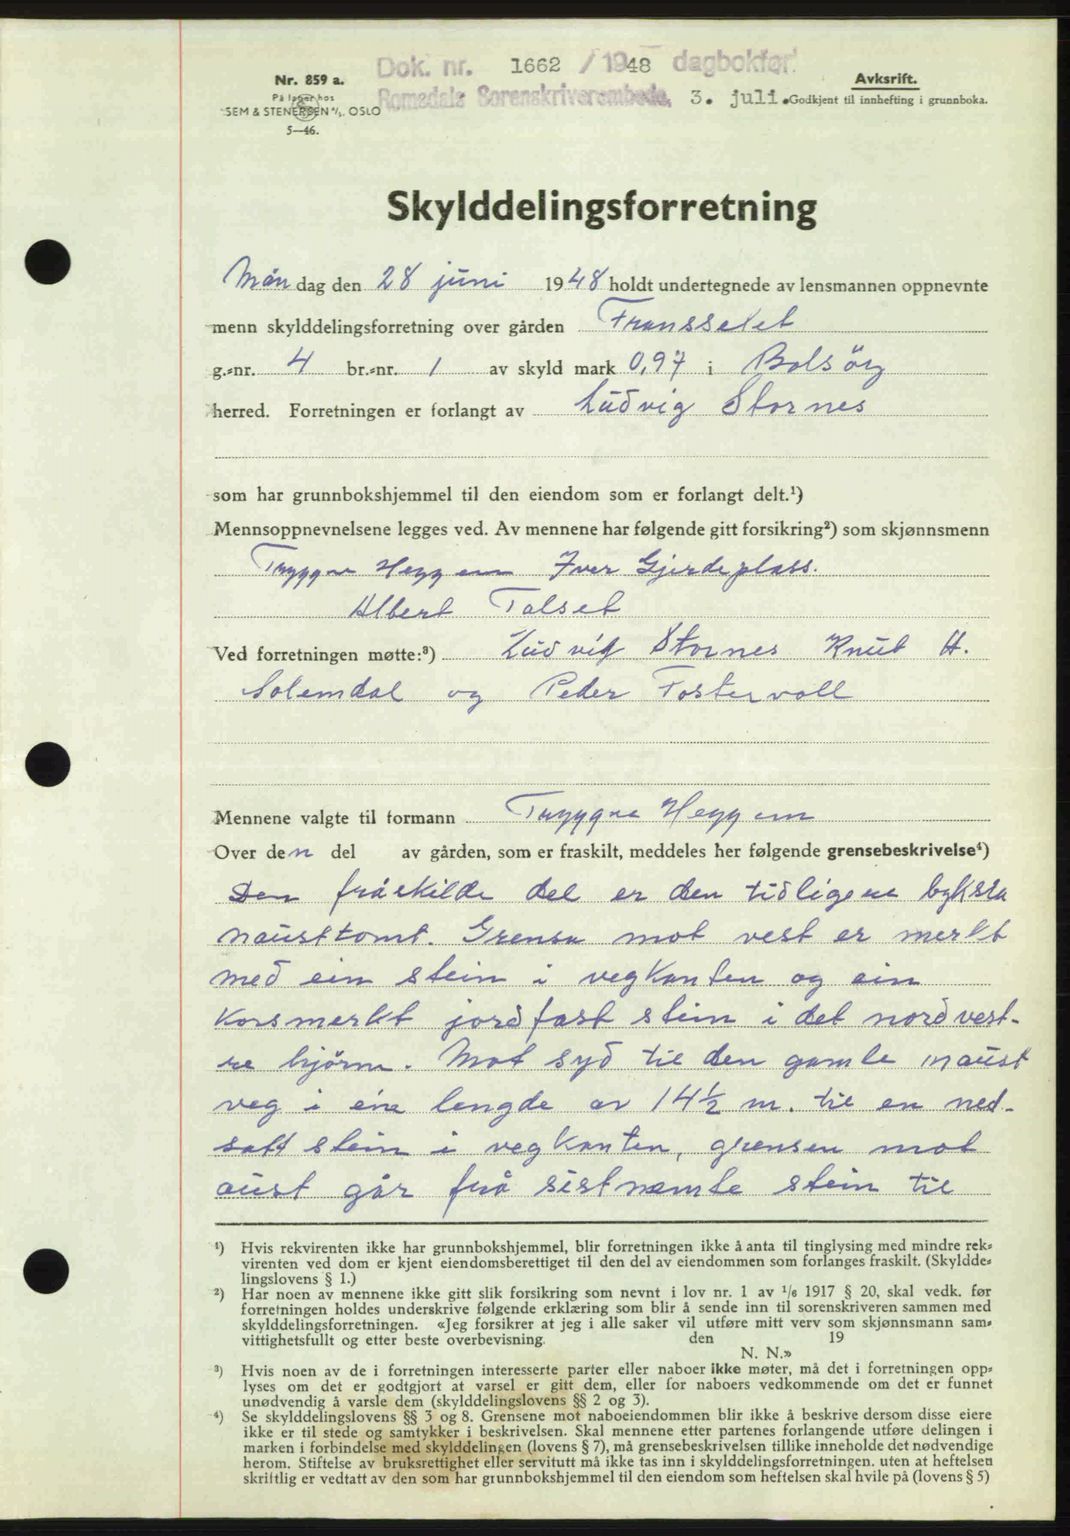 Dok. nr. 1662 / 1948 dagbokført
Nr. 859 a.
Avskrift.
På lager hos
Romsdals Sorenskriverembede, 3. juli.
Godkjent til innhefting i grunnboka.
SEM & STENERSEN A/S. OSLO
5—46.
Skylddelingsforretning
Mån dag den 28 juni 1948 holdt undertegnede av lensmannen oppnevnte
menn skylddelingsforretning over gården Fransselet
g.-nr. 4 br.-nr. 1 av skyld mark 0,97 i Bolsöy
herred. Forretningen er forlangt av Ludvig Stornes
som har grunnbokshjemmel til den eiendom som er forlangt delt.¹)
Mennsoppnevnelsene legges ved. Av mennene har følgende gitt forsikring²) som skjønnsmenn
Tryggve Heggem Iver Gjerdeplass.
Albert Talset
Ved forretningen møtte:³) Ludvig Stornes Knut H.
Solemdal og Peder Fostervoll
Mennene valgte til formann Tryggve Heggem
Over den del av gården, som er fraskilt, meddeles her følgende grensebeskrivelse⁴)
Den fråskilde del er den tidligere byksla
nausttomt. Grensa mot vest er merkt
med ein stein i vegkanten og ein
korsmerkt jordfast stein i det nordvest-
re hjörne. Mot syd til den gamle naust
veg i eine lengde av 14½ m. til en ned-
satt stein i vegkanten, grensen mot
aust går frå sistnemte stein til
¹) Hvis rekvirenten ikke har grunnbokshjemmel, blir forretningen ikke å anta til tinglysing med mindre rek-
virenten ved dom er kjent eiendomsberettiget til den del av eiendommen som forlanges fraskilt. (Skyldde-
lingslovens § 1.)
²) Har noen av mennene ikke gitt slik forsikring som nevnt i lov nr. 1 av 1/6 1917 § 20, skal vedk. før
forretningen holdes underskrive følgende erklæring som blir å sende inn til sorenskriveren sammen med
skylddelingsforretningen. «Jeg forsikrer at jeg i alle saker vil utføre mitt verv som skjønnsmann sam-
vittighetsfullt og etter beste overbevisning. den 19
N. N.»
³) Hvis noen av de i forretningen interesserte parter eller naboer ikke møter, må det i forretningen opp-
lyses om det er godtgjort at varsel er gitt dem, eller for naboers vedkommende om det er funnet
unødvendig å varsle dem (skylddelingslovens §§ 2 og 3).
⁴) Se skylddelingslovens §§ 3 og 8. Grensene mot naboeiendommen blir ikke å beskrive dersom disse eiere
ikke er til stede og samtykker i beskrivelsen. Skal mennene etter partenes forlangende utføre delingen i
marken i forbindelse med skylddelingen (lovens § 7), må grensebeskrivelsen tillike inneholde det nødvendige
herom. Stiftelse av bruksrettighet eller servitutt må ikke tas inn i skylddelingsforretningen. uten at heftelsen
skriftlig er vedtatt av den som har grunnbokshjemmel til den eiendom som heftelsen skal hvile på (lovens § 5)